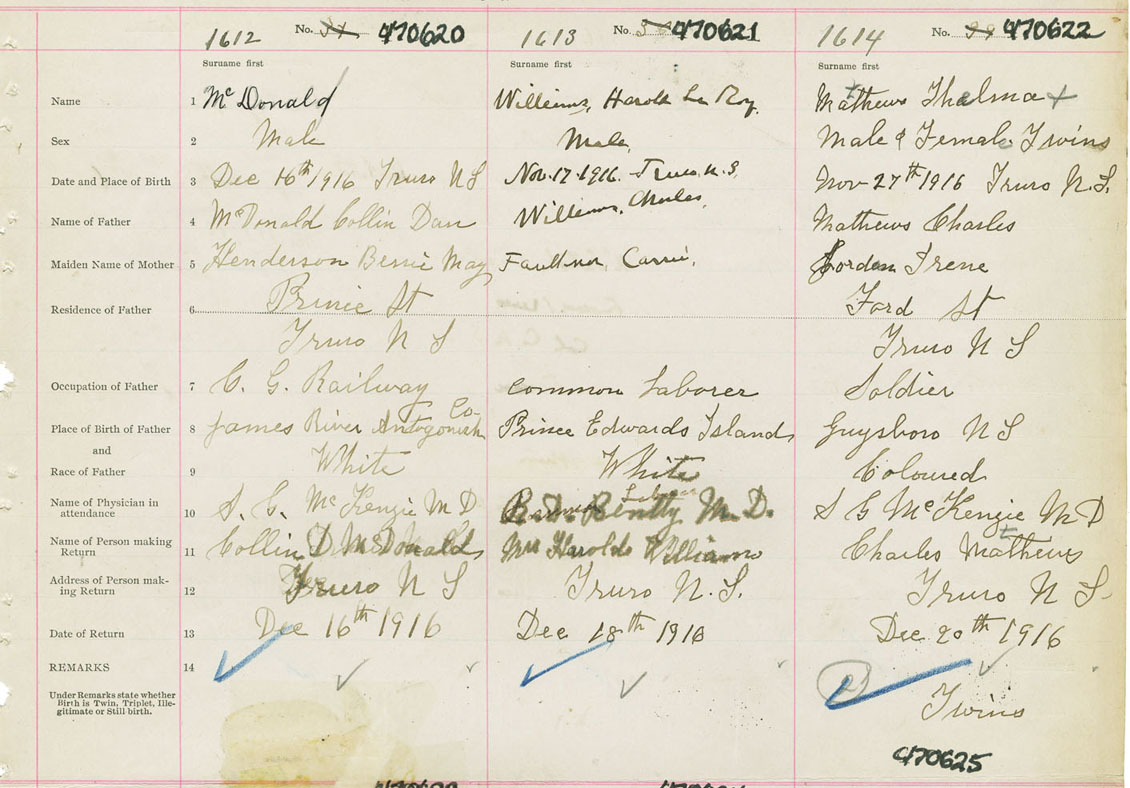 1612 No. 470620
1613 No. 470621
1614 No. 470622
Surname first
Surname first
Surname first
Name 1 McDonald
Williams, Harold Le Roy.
Mathews Thelma +
Sex 2 Male
Male,
Male & Female Twins
Date and Place of Birth 3 Dec 16th 1916 Truro N S
Nov. 17. 1916. Truro. N. S.
Nov 27th 1916 Truro N.S.
Name of Father 4 McDonald Collin Dan
Williams, Charles,
Mathews Charles
Maiden Name of Mother 5 Henderson Bessie May
Faulkner, Carrie,
Gordon Irene
Residence of Father 6 Prince St
Truro N S
Ford St
Truro N S
Occupation of Father 7 C. G. Railway
Common Laborer
Soldier
Place of Birth of Father 8 James River Antogonish Co-
Prince Edwards Island
Guysboro N S
and
Race of Father 9 White
White
Coloured
Name of Physician in
attendance 10 S. G. McKenzie M D
Bentty M. D.
S G McKenzie M D
Name of Person making
Return 11 Collin D McDonald
Mrs Harold Williams
Charles Mathews
Address of Person mak-
ing Return 12 Truro N S
Truro N. S.
Truro N S.
Date of Return 13 Dec 16th 1916
Dec 18th 1916
Dec 20th 1916
REMARKS 14
Under Remarks state whether
Birth is Twin, Triplet, Ille-
gitimate or Still birth.
2
Twins
470625